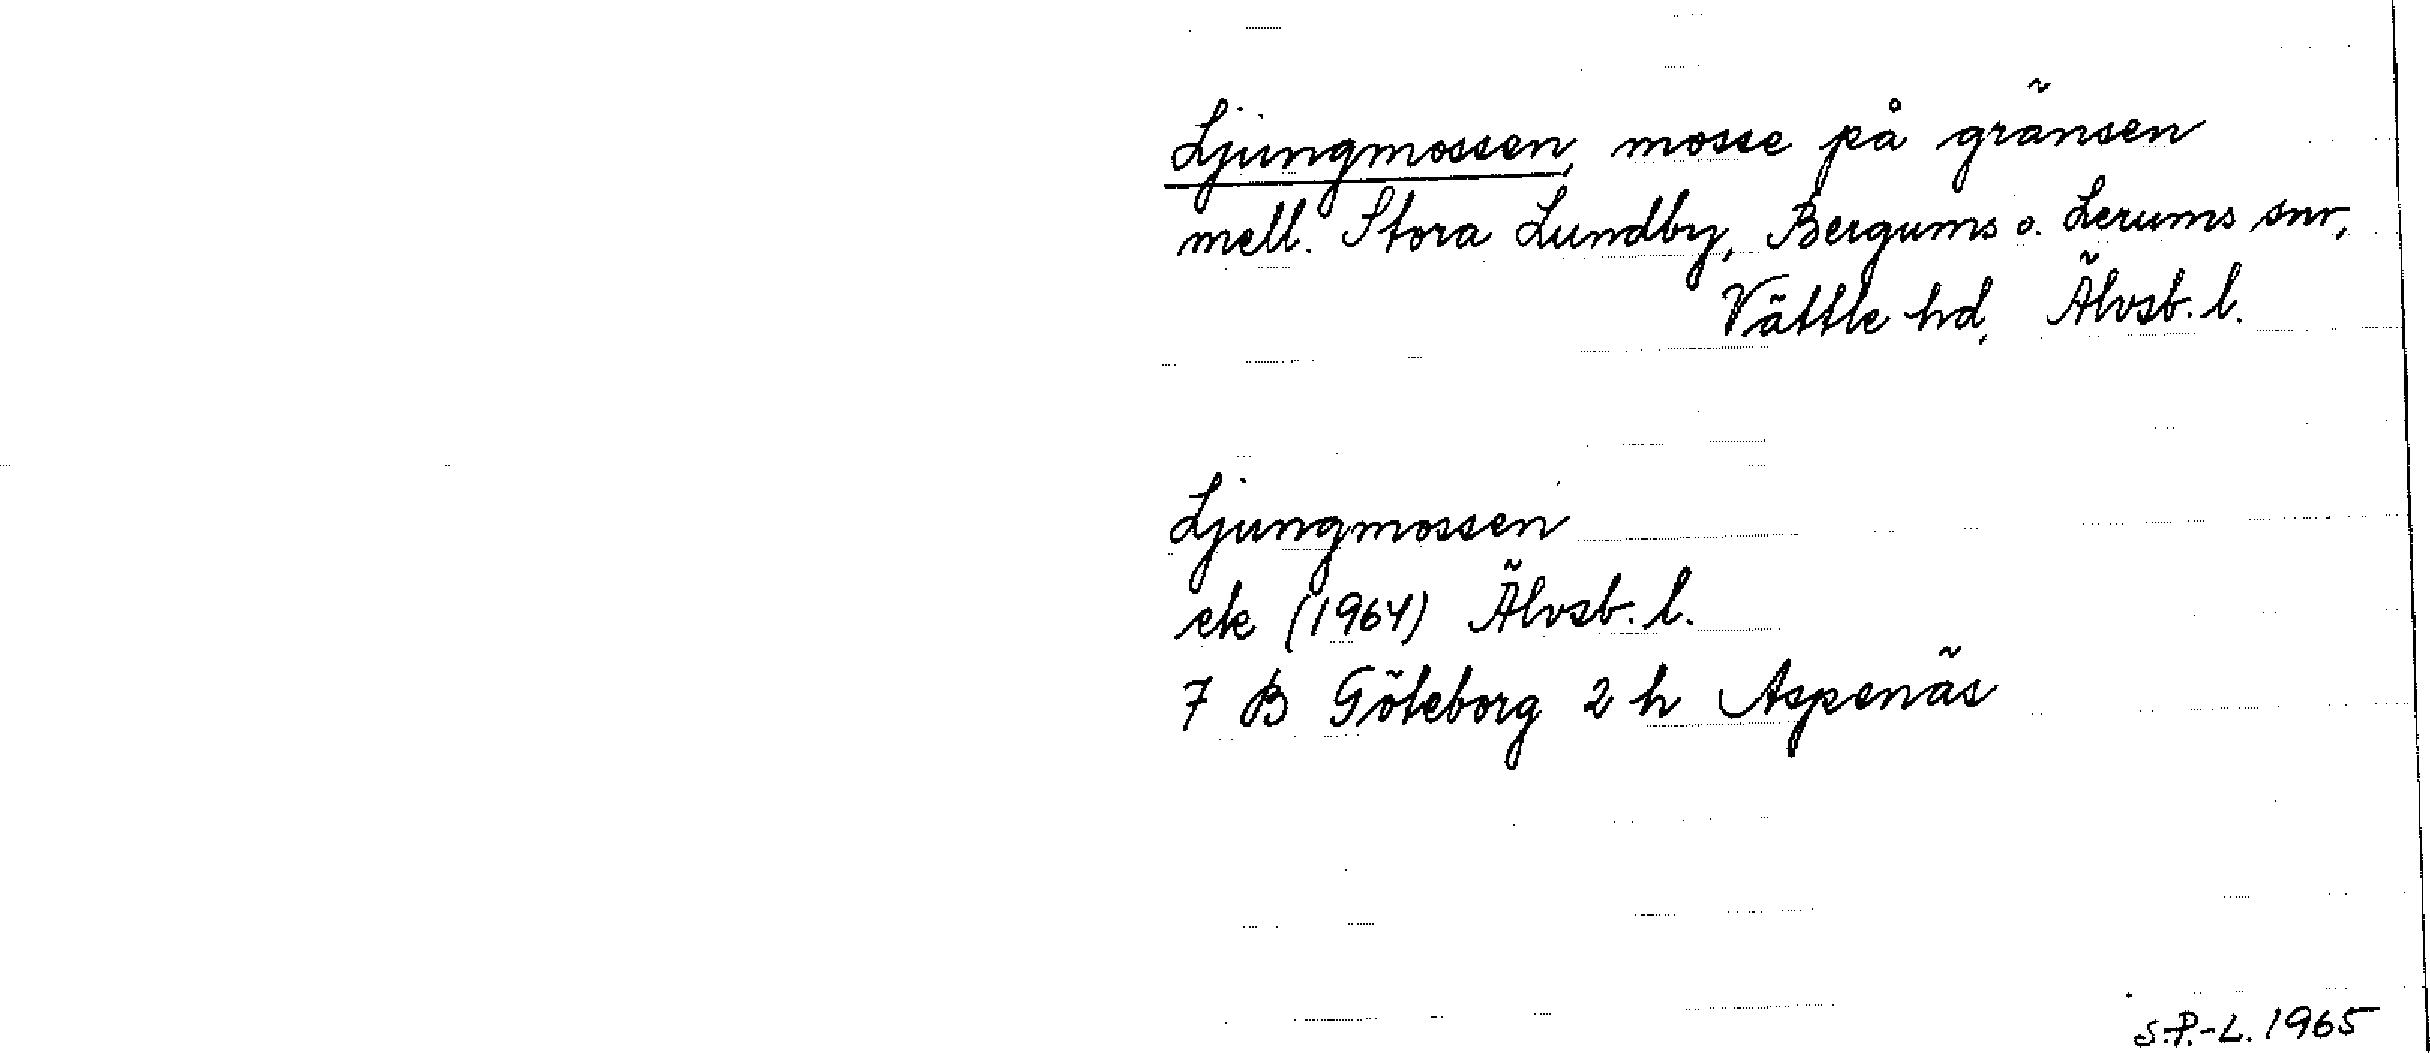 Ljungmossen, mosse på gränsen
mell. Stora Lundby, Bergums o. Lerums snr,
Vättle hd, Älvsb. l.
Ljungmossen
ek (1964) Älvsb. l.
7 B Göteborg 2 h Aspenäs
S.P.-L. 1965